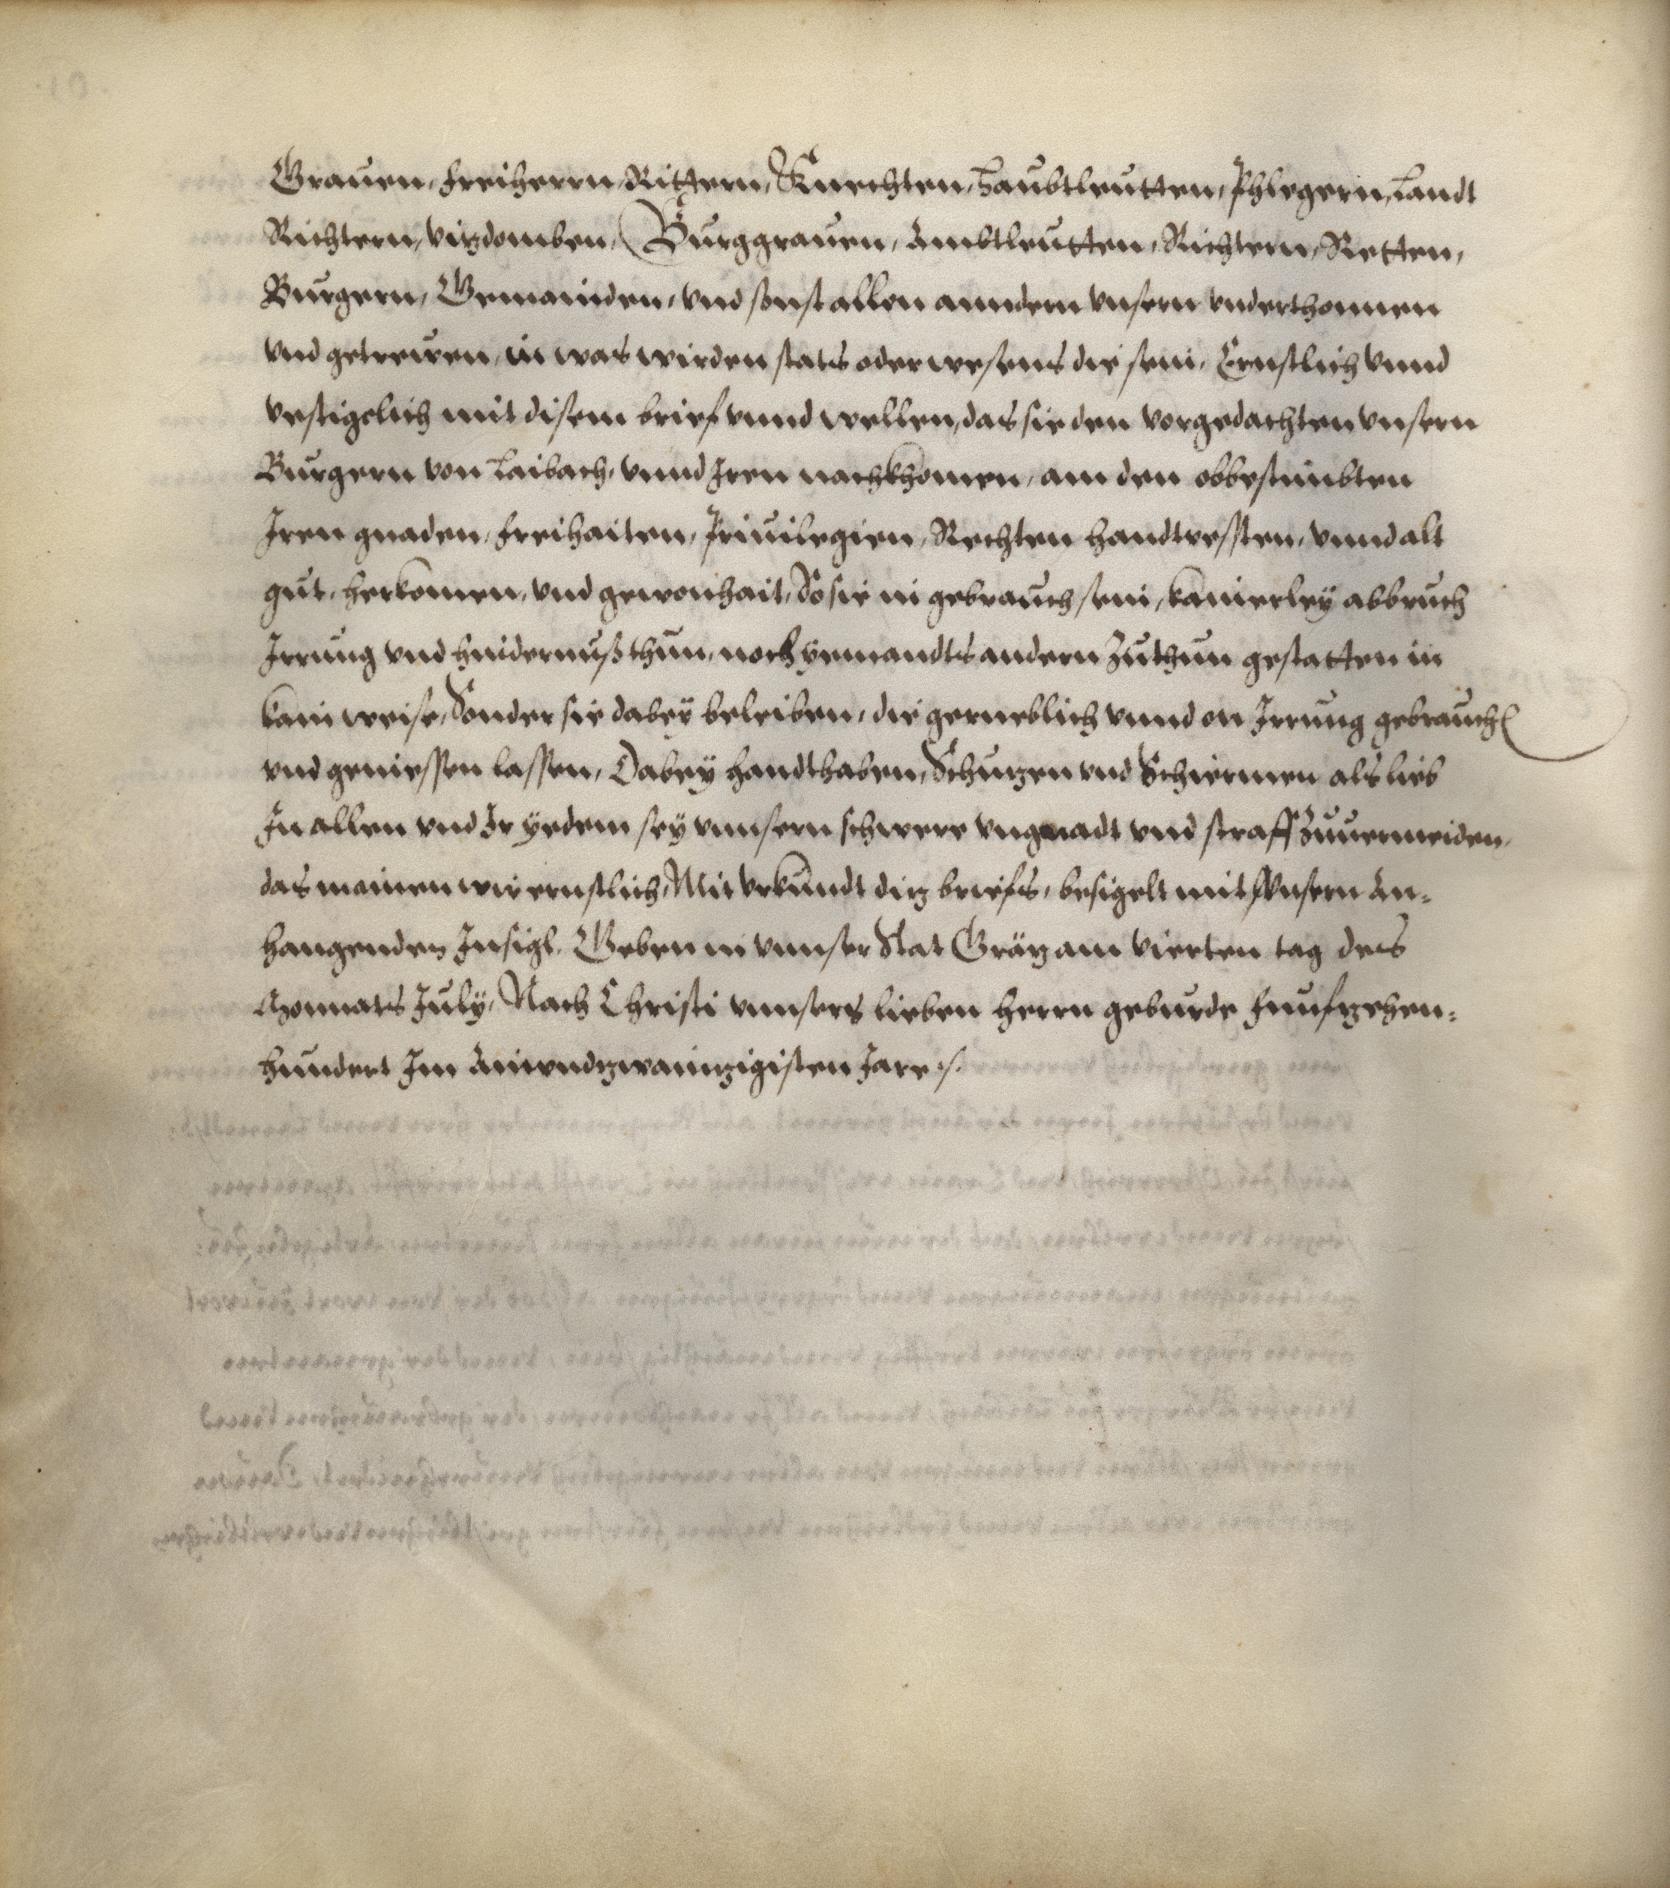 Grauen, freiherrn, Rittern, Knechten, Haubtleutten, Phlegern, Landt
Richtern, vitzdomben, Burggrauen, Ambtleutten, Richtern, Retten,
Burgern, Gemainden, vnd sonst allen anndern vnsern vnderthonnen
vnd getrewen, in was wirden stats oder wesens die sein, Ernstlich vnnd
vestigclich mit disem brief vnnd wellen, das sie den vorgedachten vnsern
Burgern von Laibach, vnnd Iren nachkhomen, an den obbestimbten
Iren gnaden, freihaiten, Priuilegien, Rechten handtvessten, vnnd alt
gut, herkomen, vnd gewonhait, So sie in gebrauch sein, kainerley abbruch
Irrung vnd hindernuß thun, noch yemandts andern Zuthun gestatten in
kain weise, Sonder sie dabey beleiben, die gerueblich vnnd on Irrung gebrauch
vnd geniessen lassen, Dabey handthaben, Schutzen vnd Schiermen als lieb
In allen vnd Ir yedem sey vnnsern schwere vngnadt vnd straff Zuuermeiden,
das mainen wir ernstlich, Mit vrkundt ditz briefs, besigelt mit Vnsern An=
hangenden Insigl. Geben in vnnser Stat Grätz am vierten tag des
Monnats July, Nach Christi vnnsers lieben herrn geburde funfzehen=
hundert Im Ainvndzwainzigisten Jare